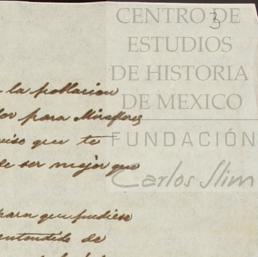 3
CENTRO DE
ESTUDIOS
DE HISTORIA
DE MEXICO
FUNDACIÓN
Carlos Slim
la poblacion
para Miraflores
que te
de ser mejor que
para que pudiese
entendido de